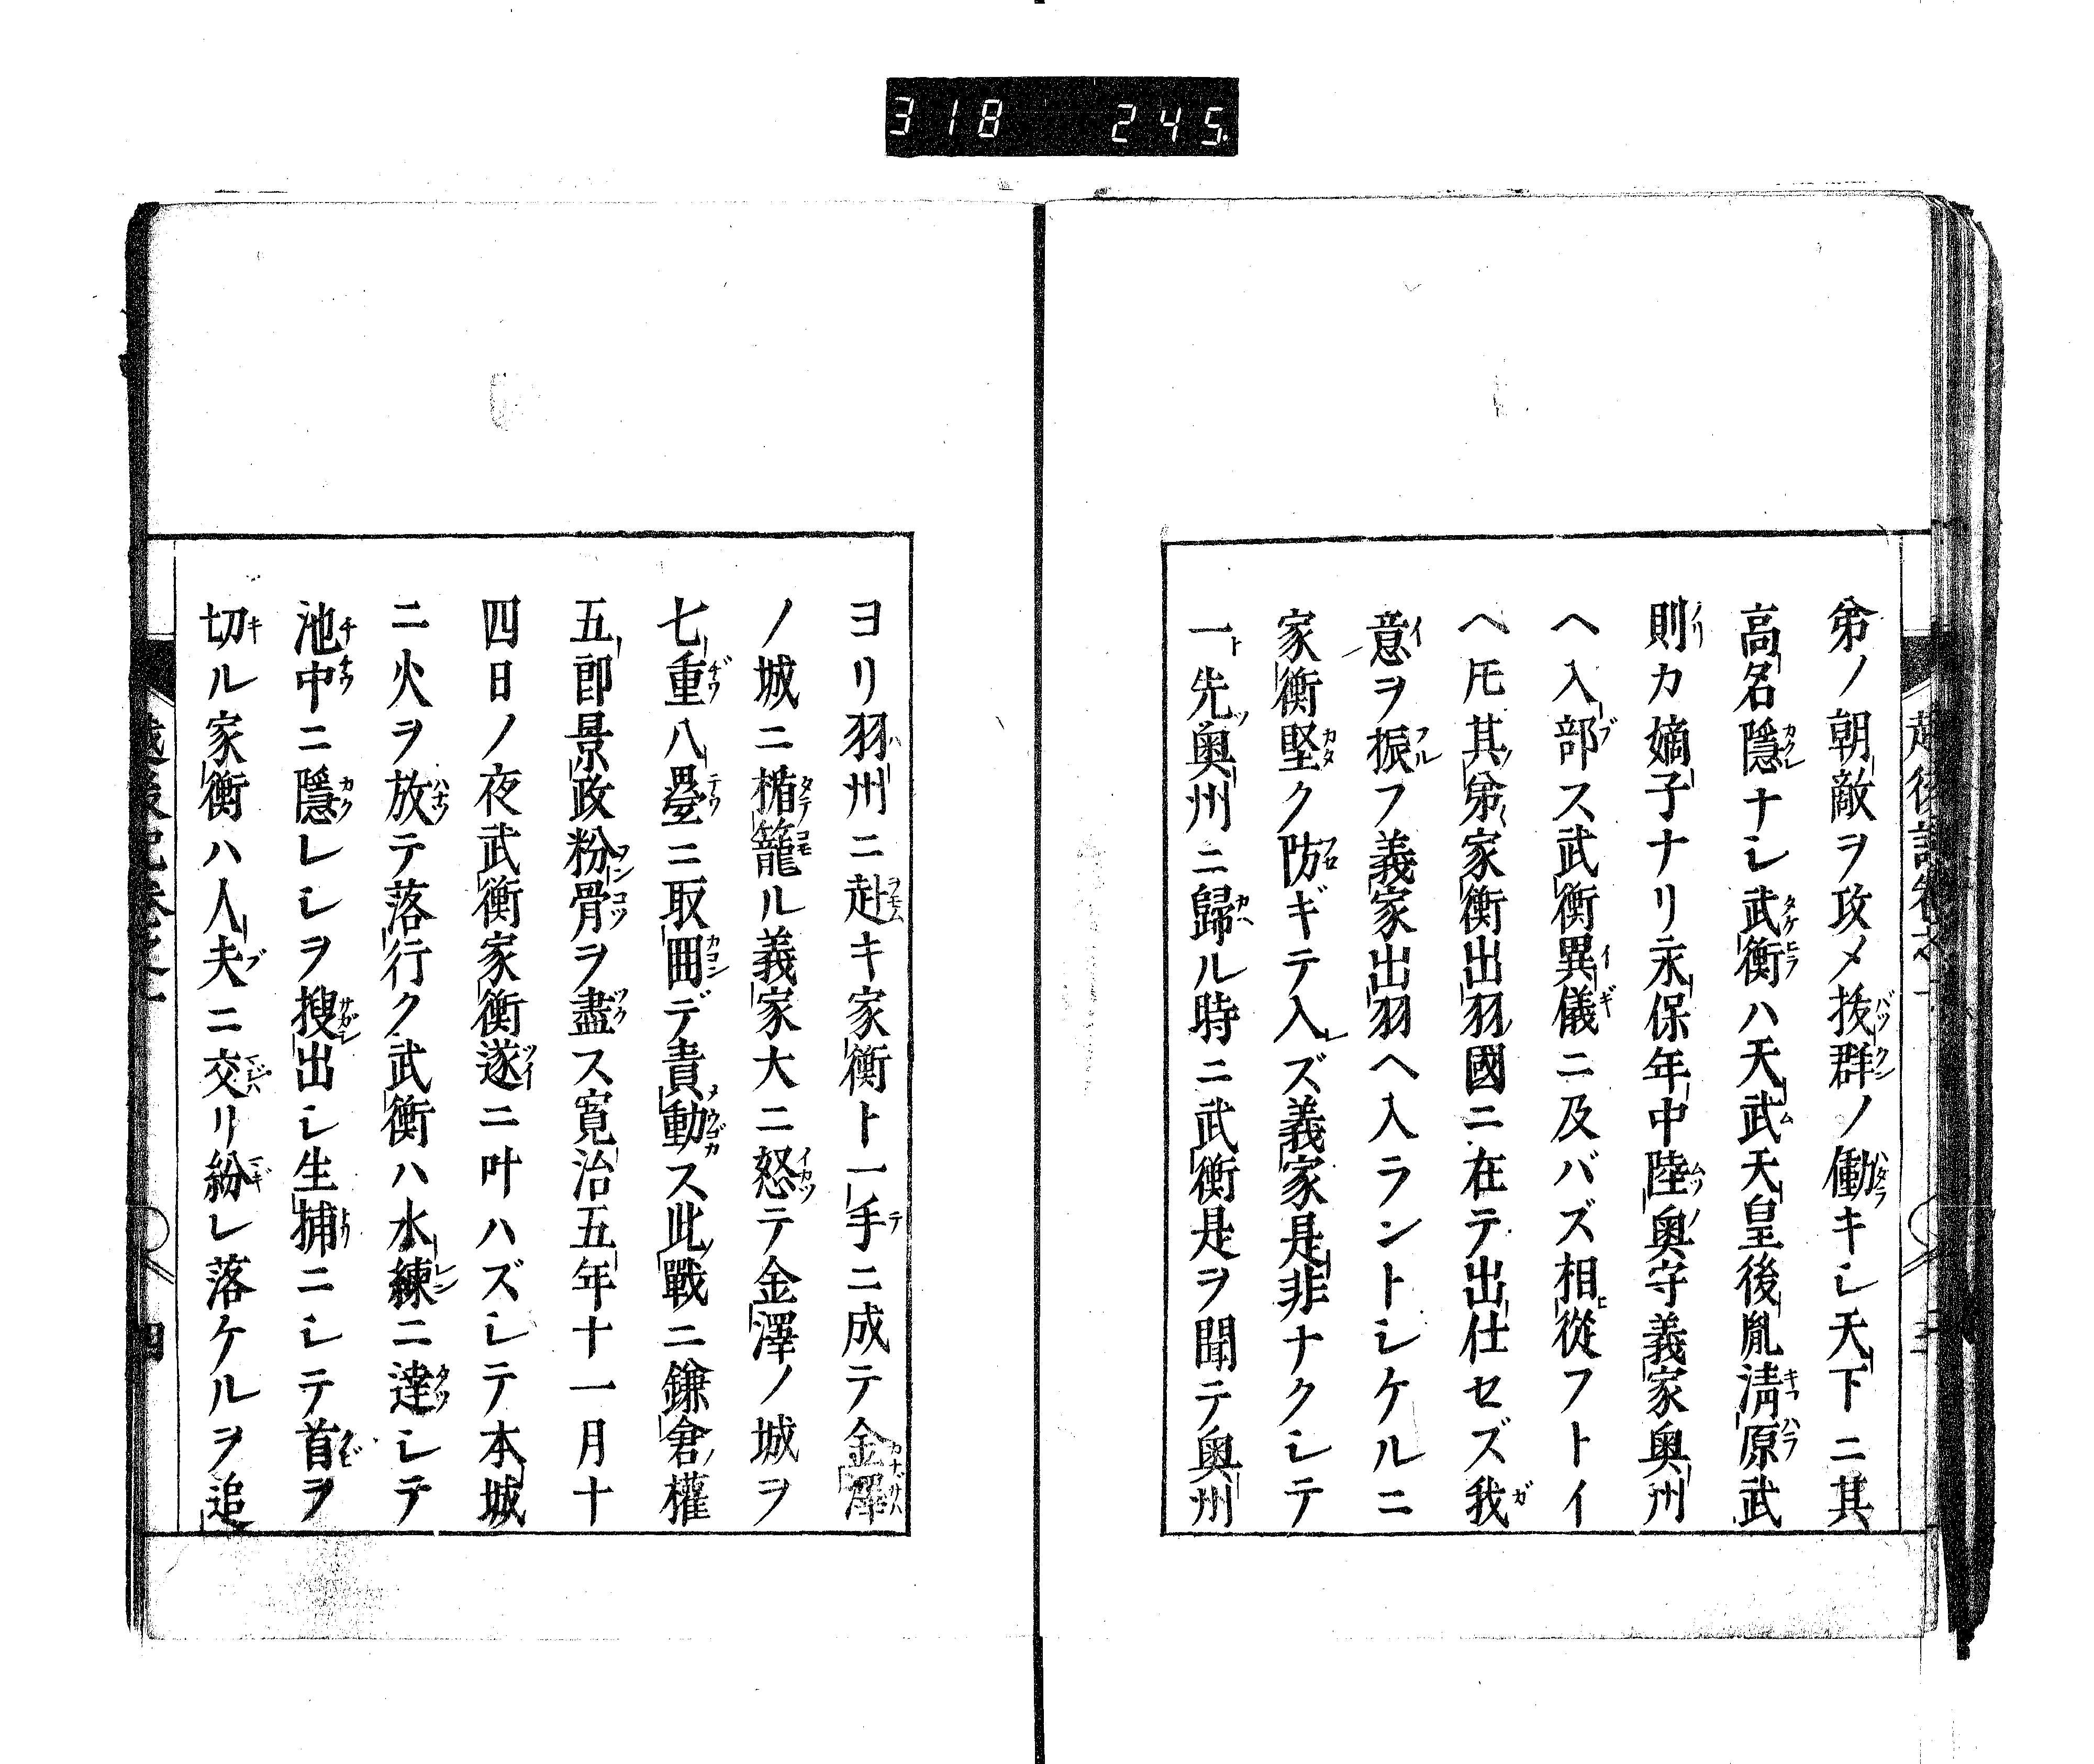 318 245
弟ノ朝敵ヲ攻メ抜群ノ働キシ天下ニ其
高名隱ナシ武衡ハ天武天皇後胤淸原武
則カ嫡子ナリ永保年中陸奥守義家奥州
ヘ入部ス武衡異儀ニ及バズ相從フトイ
ヘ𪜈其弟家衡出羽國ニ在テ出仕セズ我
意ヲ振フ義家出羽ヘ入ラントシケルニ
家衡堅ク防ギテ入レズ義家是非ナクシテ
一先奥州ニ歸ル時ニ武衡是ヲ聞テ奥州
ヨリ羽州ニ赴キ家衡ト一手ニ成テ金澤
ノ城ニ楯籠ル義家大ニ怒テ金澤ノ城ヲ
七重八疊ニ取囲デ責動ス此戰ニ鎌倉權
五郎景政粉骨ヲ盡ス寛治五年十一月十
四日ノ夜武衡家衡遂ニ叶ハズシテ本城
ニ火ヲ放テ落行ク武衡ハ水練ニ達シテ
池中ニ隱レシヲ搜出シ生捕ニシテ首ヲ
切ル家衡ハ人夫ニ交リ紛レ落ケルヲ追
四